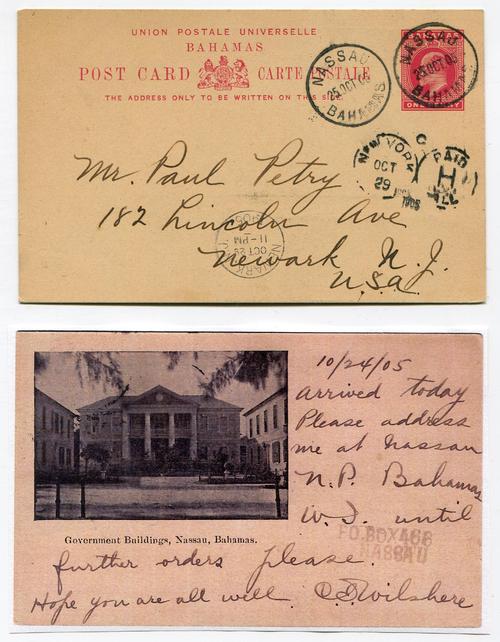 UNION POSTALE UNIVERSELLE
BAHAMAS
POST CARD CARTE POSTALE
THE ADDRESS ONLY TO BE WRITTEN ON THIS SIDE.
NASSAU
25 OCT 05
BAHAMAS
NASSAU
25 OCT 05
BAHAMAS
ONE PENNY
NEW YORK
OCT
29
1905
PAID
H
ALL
Mr. Paul Petry
182 Lincoln Ave
Newark N.J.
U.S.A.
NEWARK
OCT 29
11-PM
1905
10/24/05
arrived today
Please address
me at Nassau
N.P. Bahamas
W.I until
P.O.BOX 466
NASSAU
Government Buildings, Nassau, Bahamas.
further orders please.
Hope you are all well. Wilshere